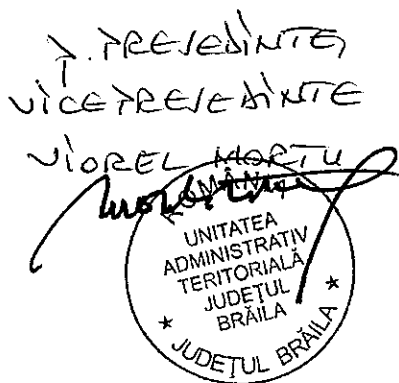 P. PREȘEDINTE,
VICEPREȘEDINTE
VIOREL MORTU
ROMÂNIA
UNITATEA
ADMINISTRATIV
TERITORIALĂ
JUDEȚUL
BRĂILA
* JUDEȚUL BRĂILA *